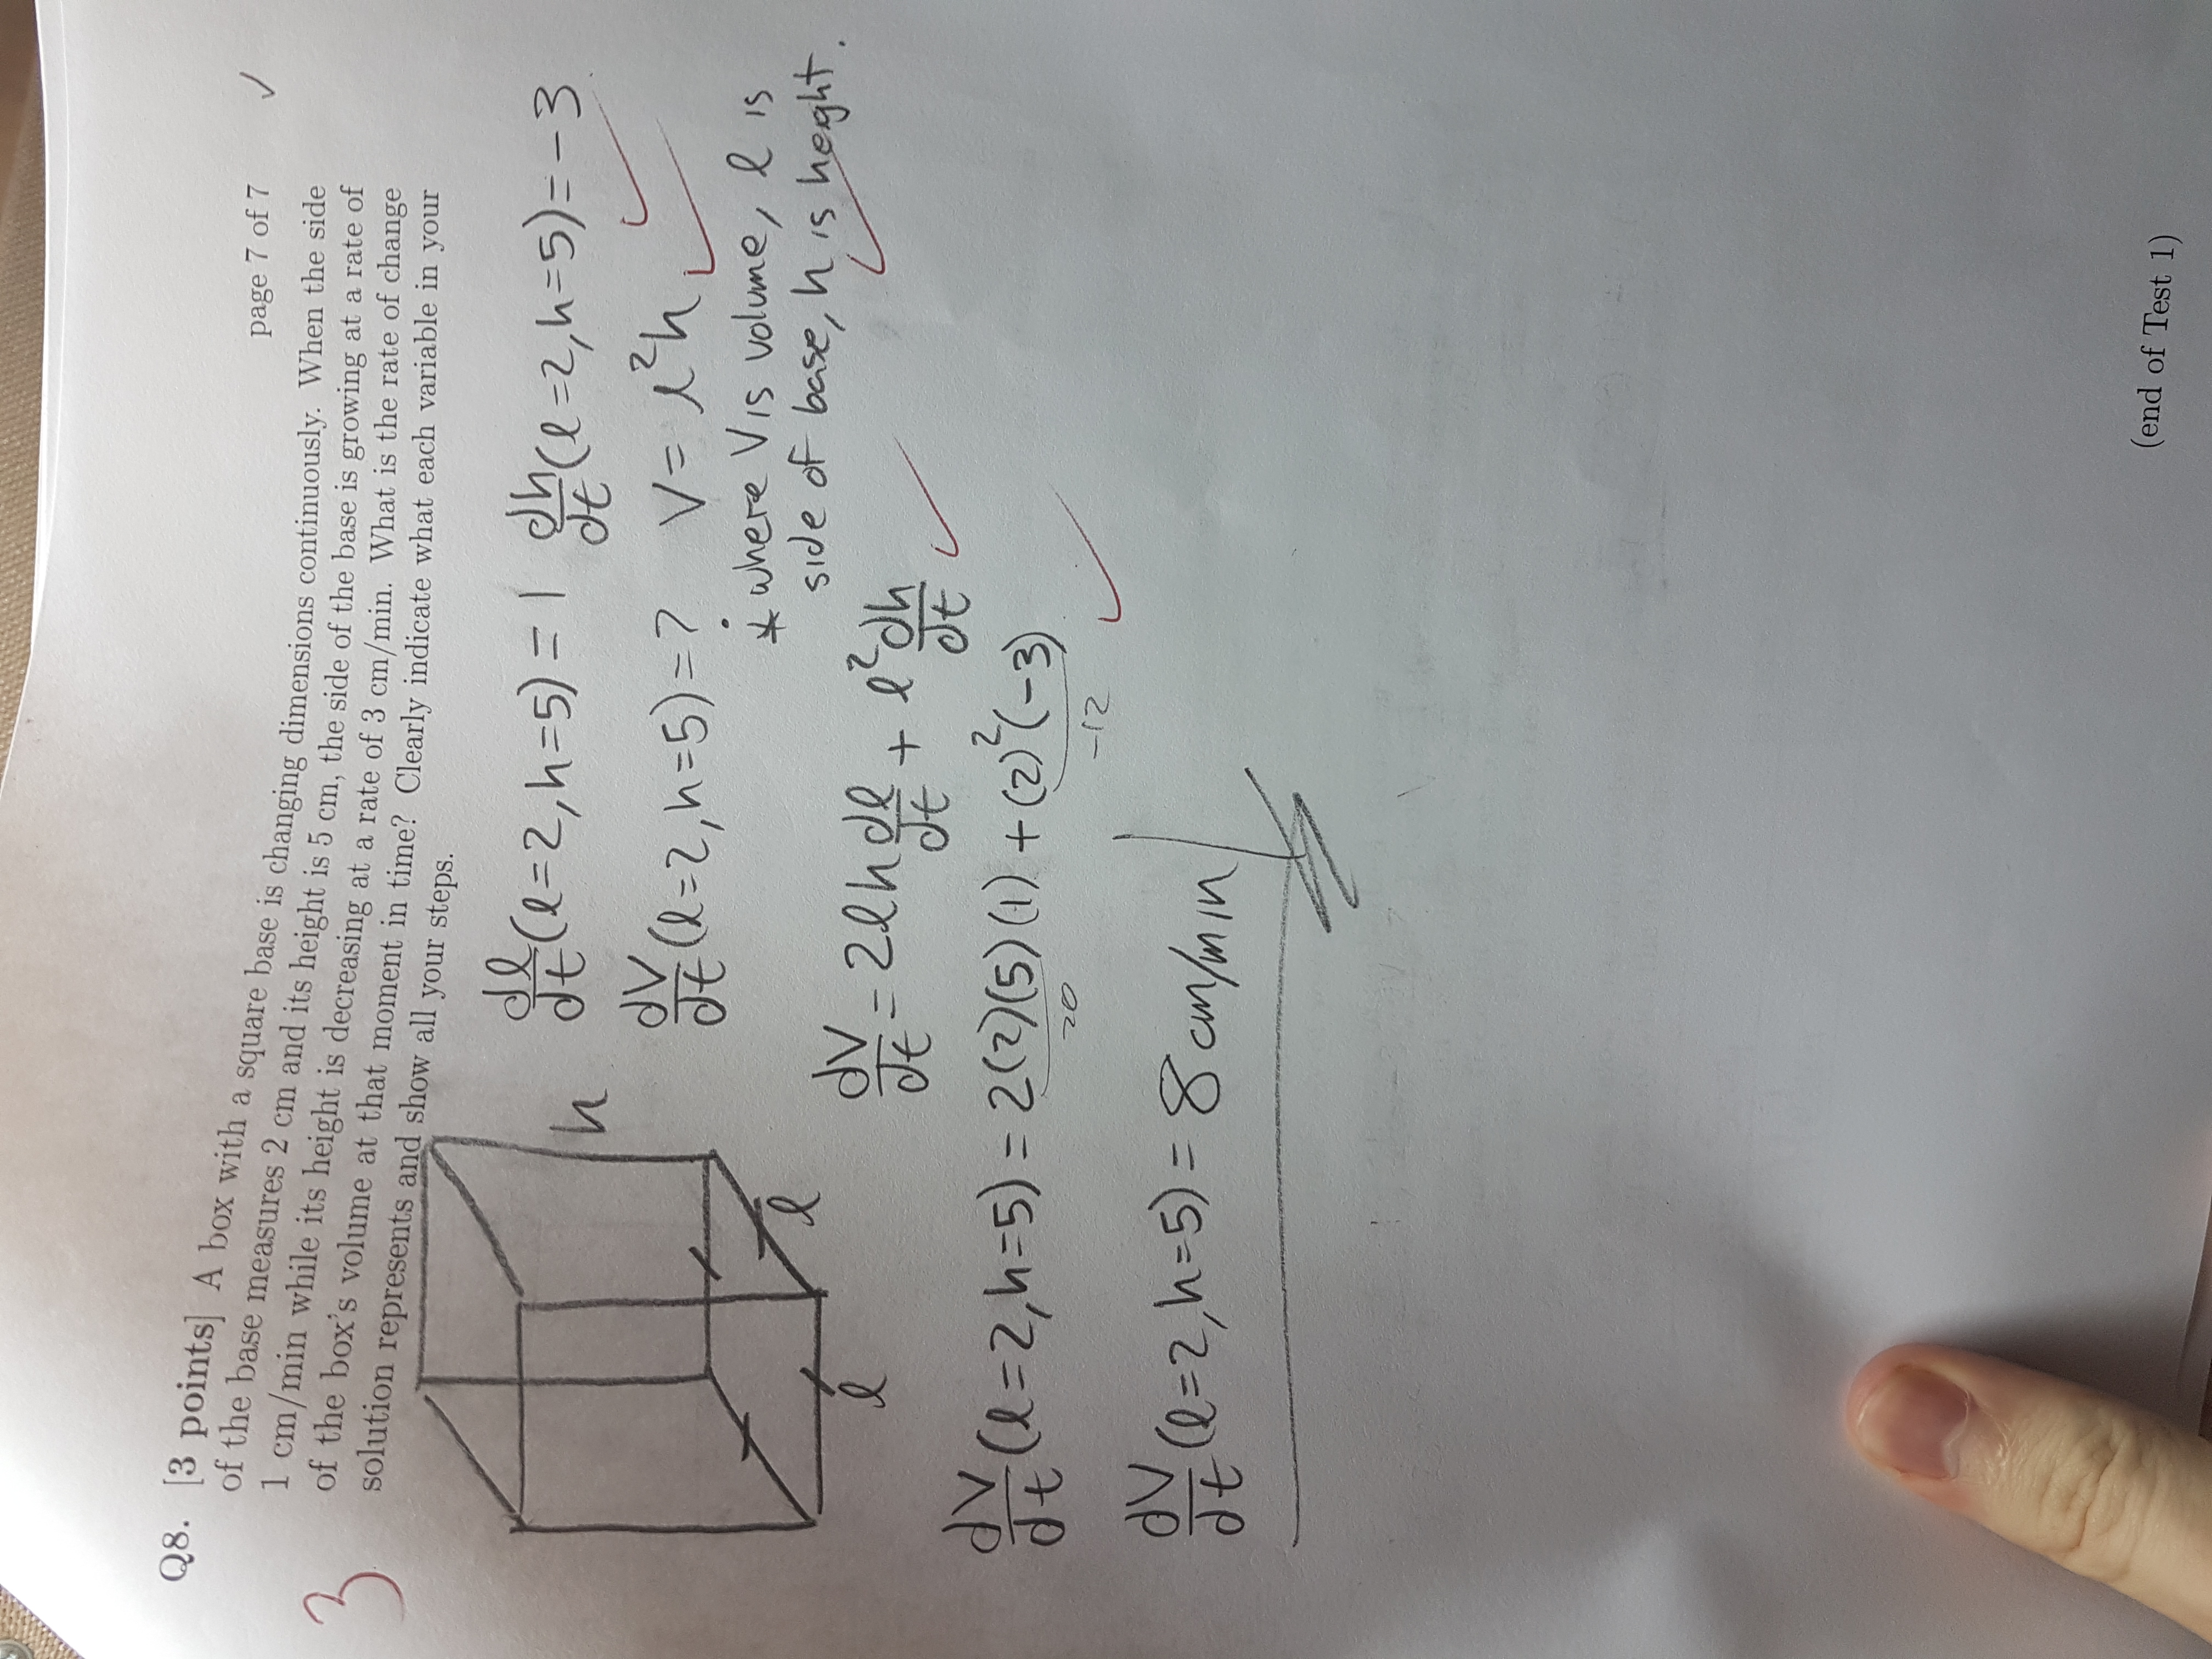 page 7 of 7 ✓
Q8. [3 points] A box with a square base is changing dimensions continuously. When the side
of the base measures 2 cm and its height is 5 cm, the side of the base is growing at a rate of
1 cm/min while its height is decreasing at a rate of 3 cm/min. What is the rate of change
of the box's volume at that moment in time? Clearly indicate what each variable in your
solution represents and show all your steps.
3
dl/dt (l=2, h=5) = 1 dh/dt (l=2, h=5) = -3
h
dV/dt (l=2, h=5) = ? V = l²h
* where V is volume, l is
side of base, h is height.
l
l
dV/dt = 2lh dl/dt + l² dh/dt
dV/dt (l=2, h=5) = 2(2)(5)(1) + (2)²(-3)
20 -12
dV/dt (l=2, h=5) = 8 cm/min
(end of Test 1)